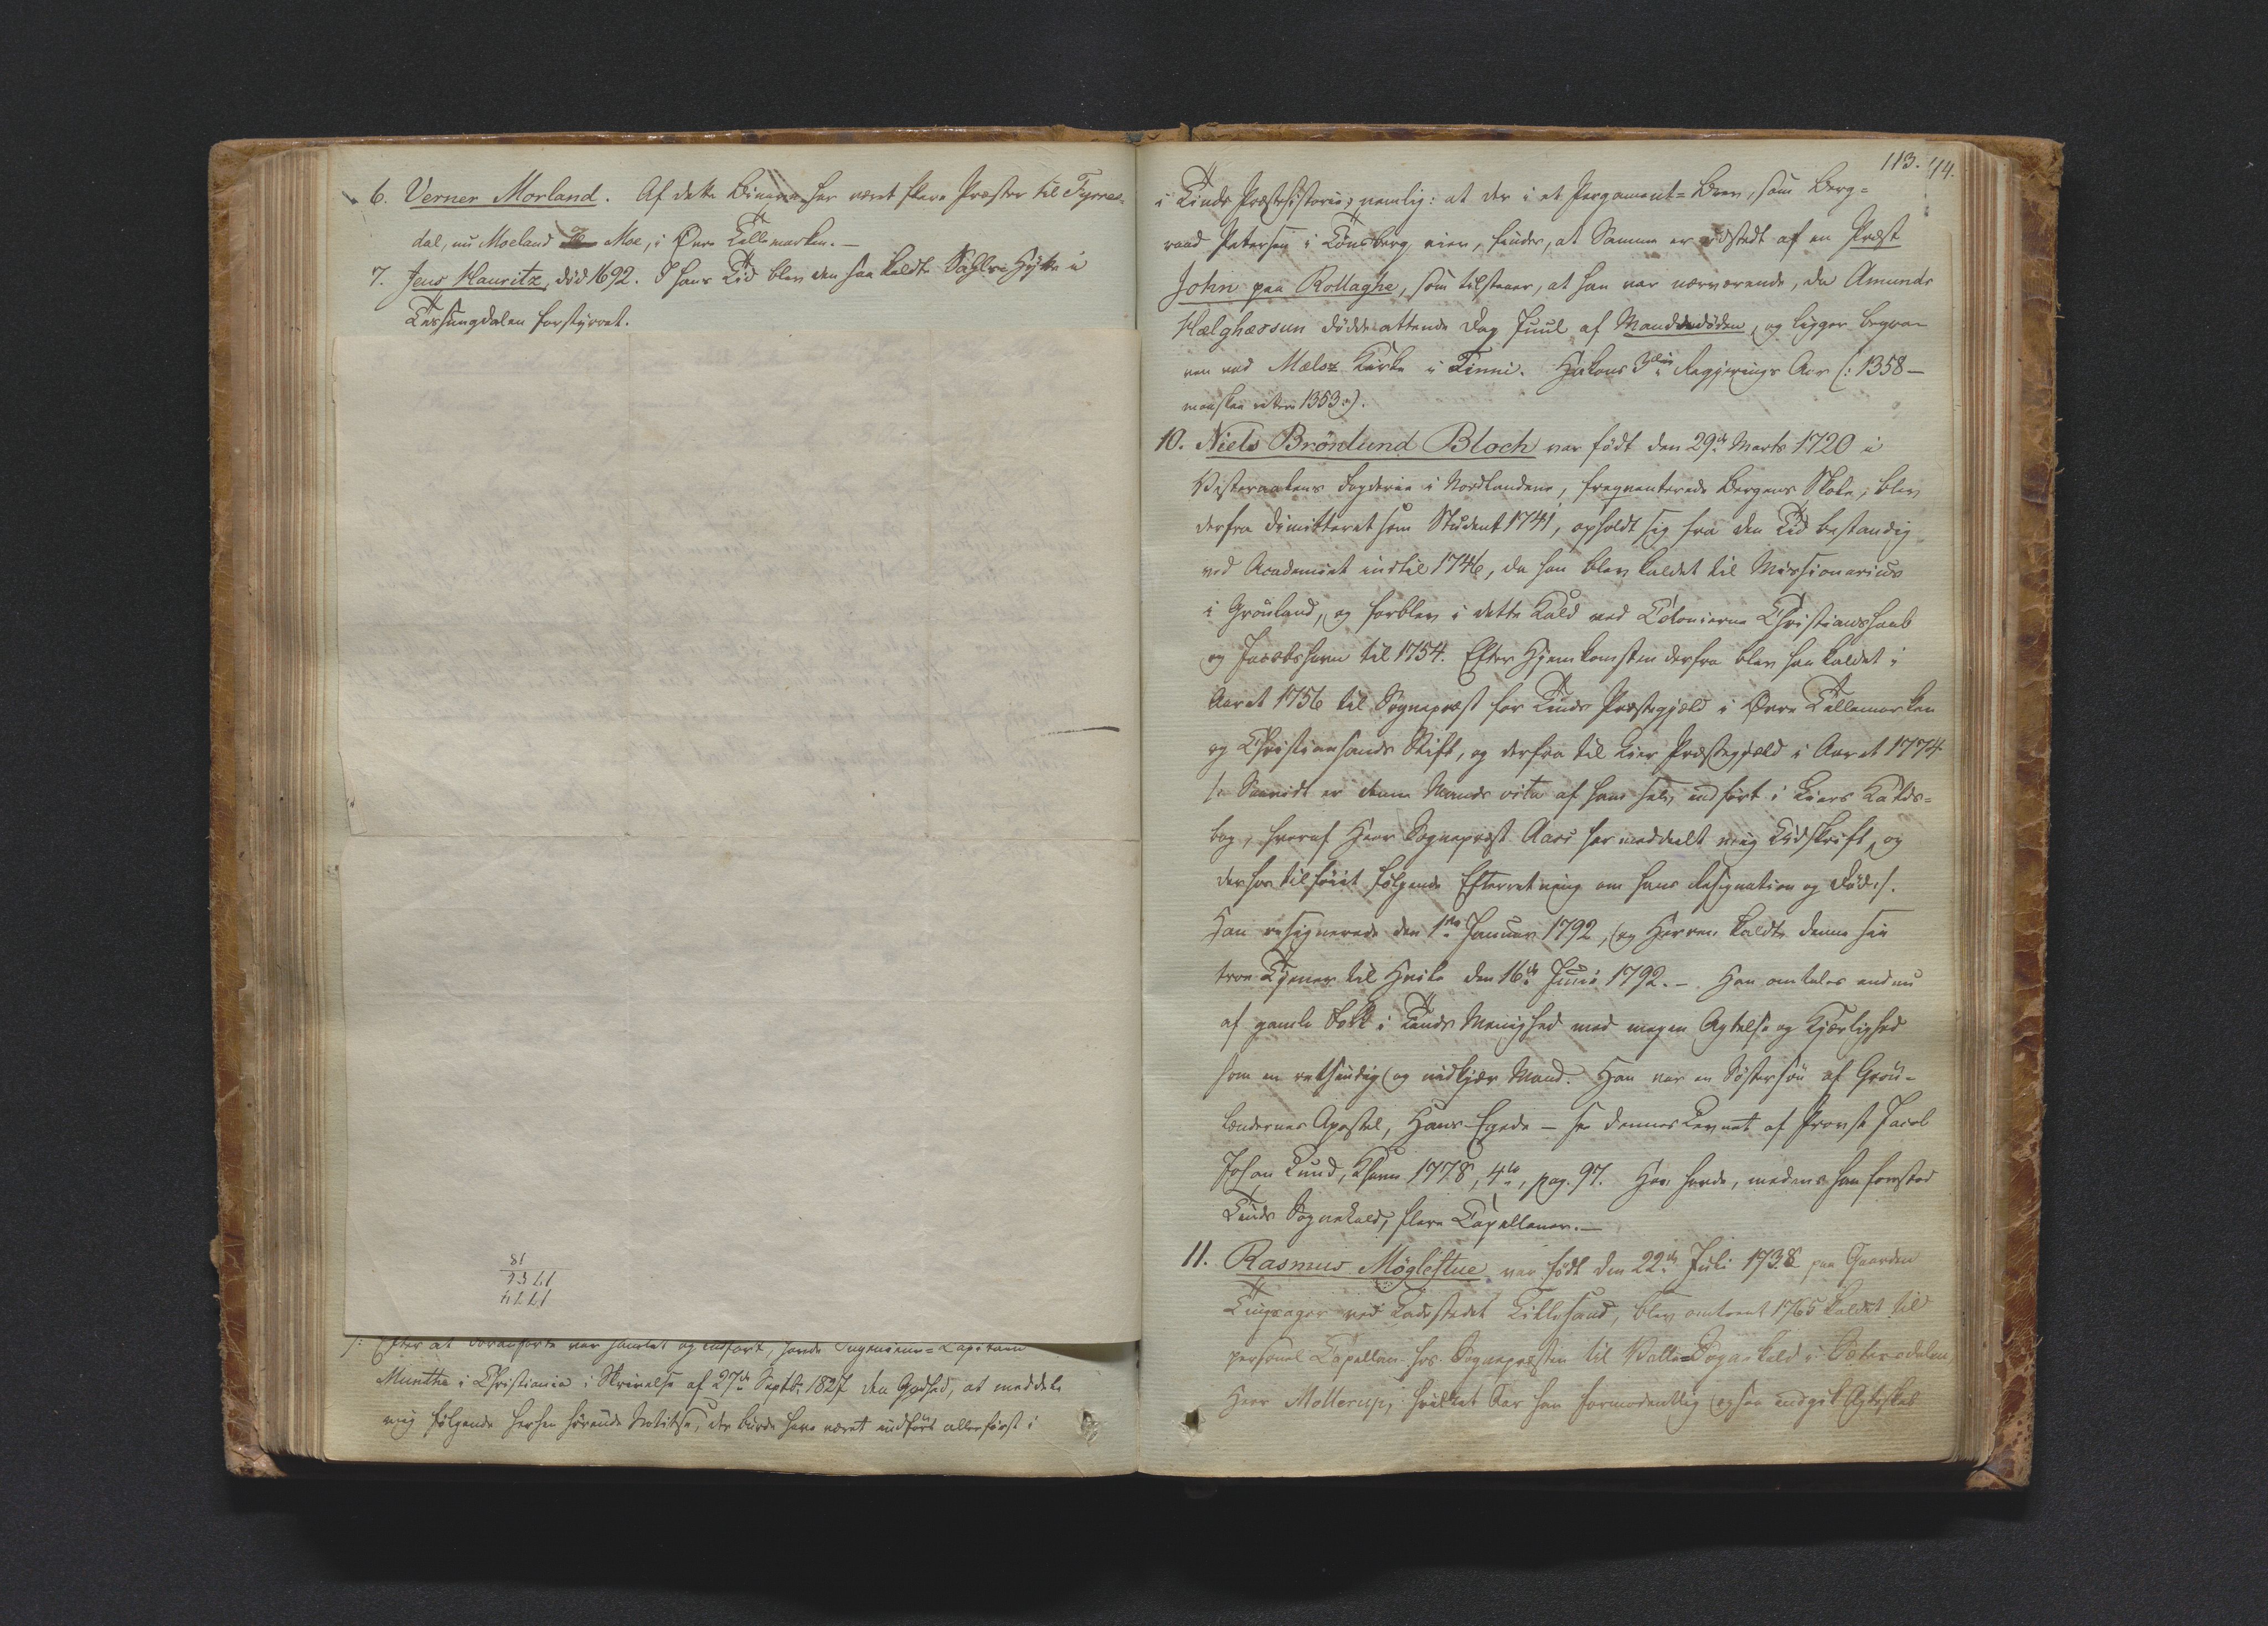 6. Verner Morland. Af dette Binavn har været flere Præster til Tyrres-
dal, nu Moeland Moe, i Øvre Tellemarken.—
7. Jens Mauritz, død 1692. I hans Tid blev den saa kaldte Hytte i
Tessungdalen forstyrret.
18
1752
1774
/: Efter at Foranførte var samlet og indført, havde Ingenieur-Capitain
Munthe i Christiania i Skrivelse af 27de Septbr 1827 den Godhed, at meddele
mig følgende herhen hørende Notitse, der burde have været indført allerførst i
113. 114.
i Tinds Præstehistorie; nemlig: at der i et Pergament-Brev, som Berg-
raad Petersen i Kongsberg eier, findes, at Samme er udstedt af en Præst
John paa Rollaghe, som tilstaaer, at han var nærværende, da Amunde
Hælghæssun døde attende Dag Juul af Manddøden, og ligger begra-
ven ved Mælsz Kirke i Tinni. Hakons 3die Regjerings Aar (: 1358—
maaskee rettere 1353:).
10. Niels Brønlund Bloch var født den 29de Marts 1720 i
Vesteraalens Fogderie i Nordlandene, freqventerede Bergens Skole, blev
derfra dimitteret som Student 1741, opholdt sig fra den Tid bestandig
ved Academiet indtil 1746, da han blev kaldet til Missionarius
i Grønland, og forblev i dette Kald ved Colonierne Christianshaab
og Jacobshavn til 1754. Efter Hjemkomsten derfra blev han kaldet i
Aaret 1756 til Sognepræst for Tinds Præstegjeld i Øvre Tellemarken
og Christiansands Stift, og derfra til Lier Præstegjæld i Aaret 1774
/: Saavidt er denne Mands vita af ham selv indført i Liers Kalds-
bog, hvoraf Herr Sognepræst Aars har meddeelt mig Udskrift, og
derhos tilføiet følgende Efterretning om hans Resignation og Død:/.
Han resignerede den 1ste Januar 1792, og Herren kaldte denne sin
troe Tjener til Hvile den 16de Junii 1792.— Han omtales endnu
af gamle Folk i Tinds Menighed med megen Agtelse og Kjærlighed
som en retsindig og nidkjær Mand. Han var en Søstersøn af Grøn-
lændernes Apostel, Hans Egede — see dennes Levnet af Provst Jacob
Johan Lund, Khavn 1778, 4to, pag. 97. Han havde, medens han forestod
Tinds Sognekald, flere Capellaner.—
11. Rasmus Møglestue var født den 22de Juli 1738 paa Gaarden
Tingsager ved Ladestedet Lillesand, blev omtrent 1765 kaldet til
personel Capellan hos Sognepræsten til Valle Sognekald i Sætersdalen,
Herr Mollerup; hvilket Aar han formodentlig ogsaa indgik Ægteskab